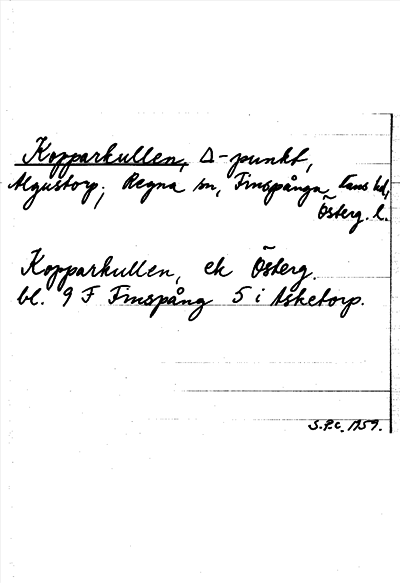 Kopparkullen, Δ-punkt,
Algustorp; Regna sn, Finspånga läns hd,
Österg. l.
Kopparkullen, ek Österg.
bl. 9 F Finspång 5 i Asketorp.
S.P.C. 1959.